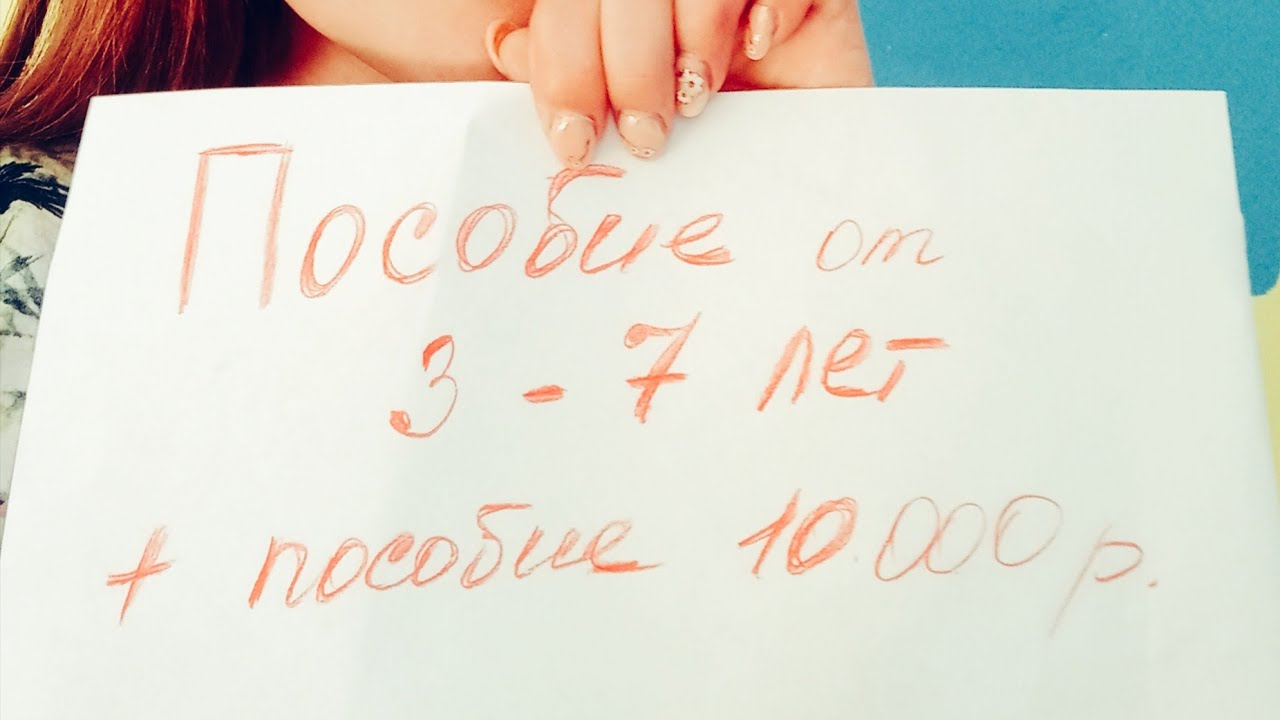 Пособие от
3 - 7 лет
+ пособие 10.000 р.